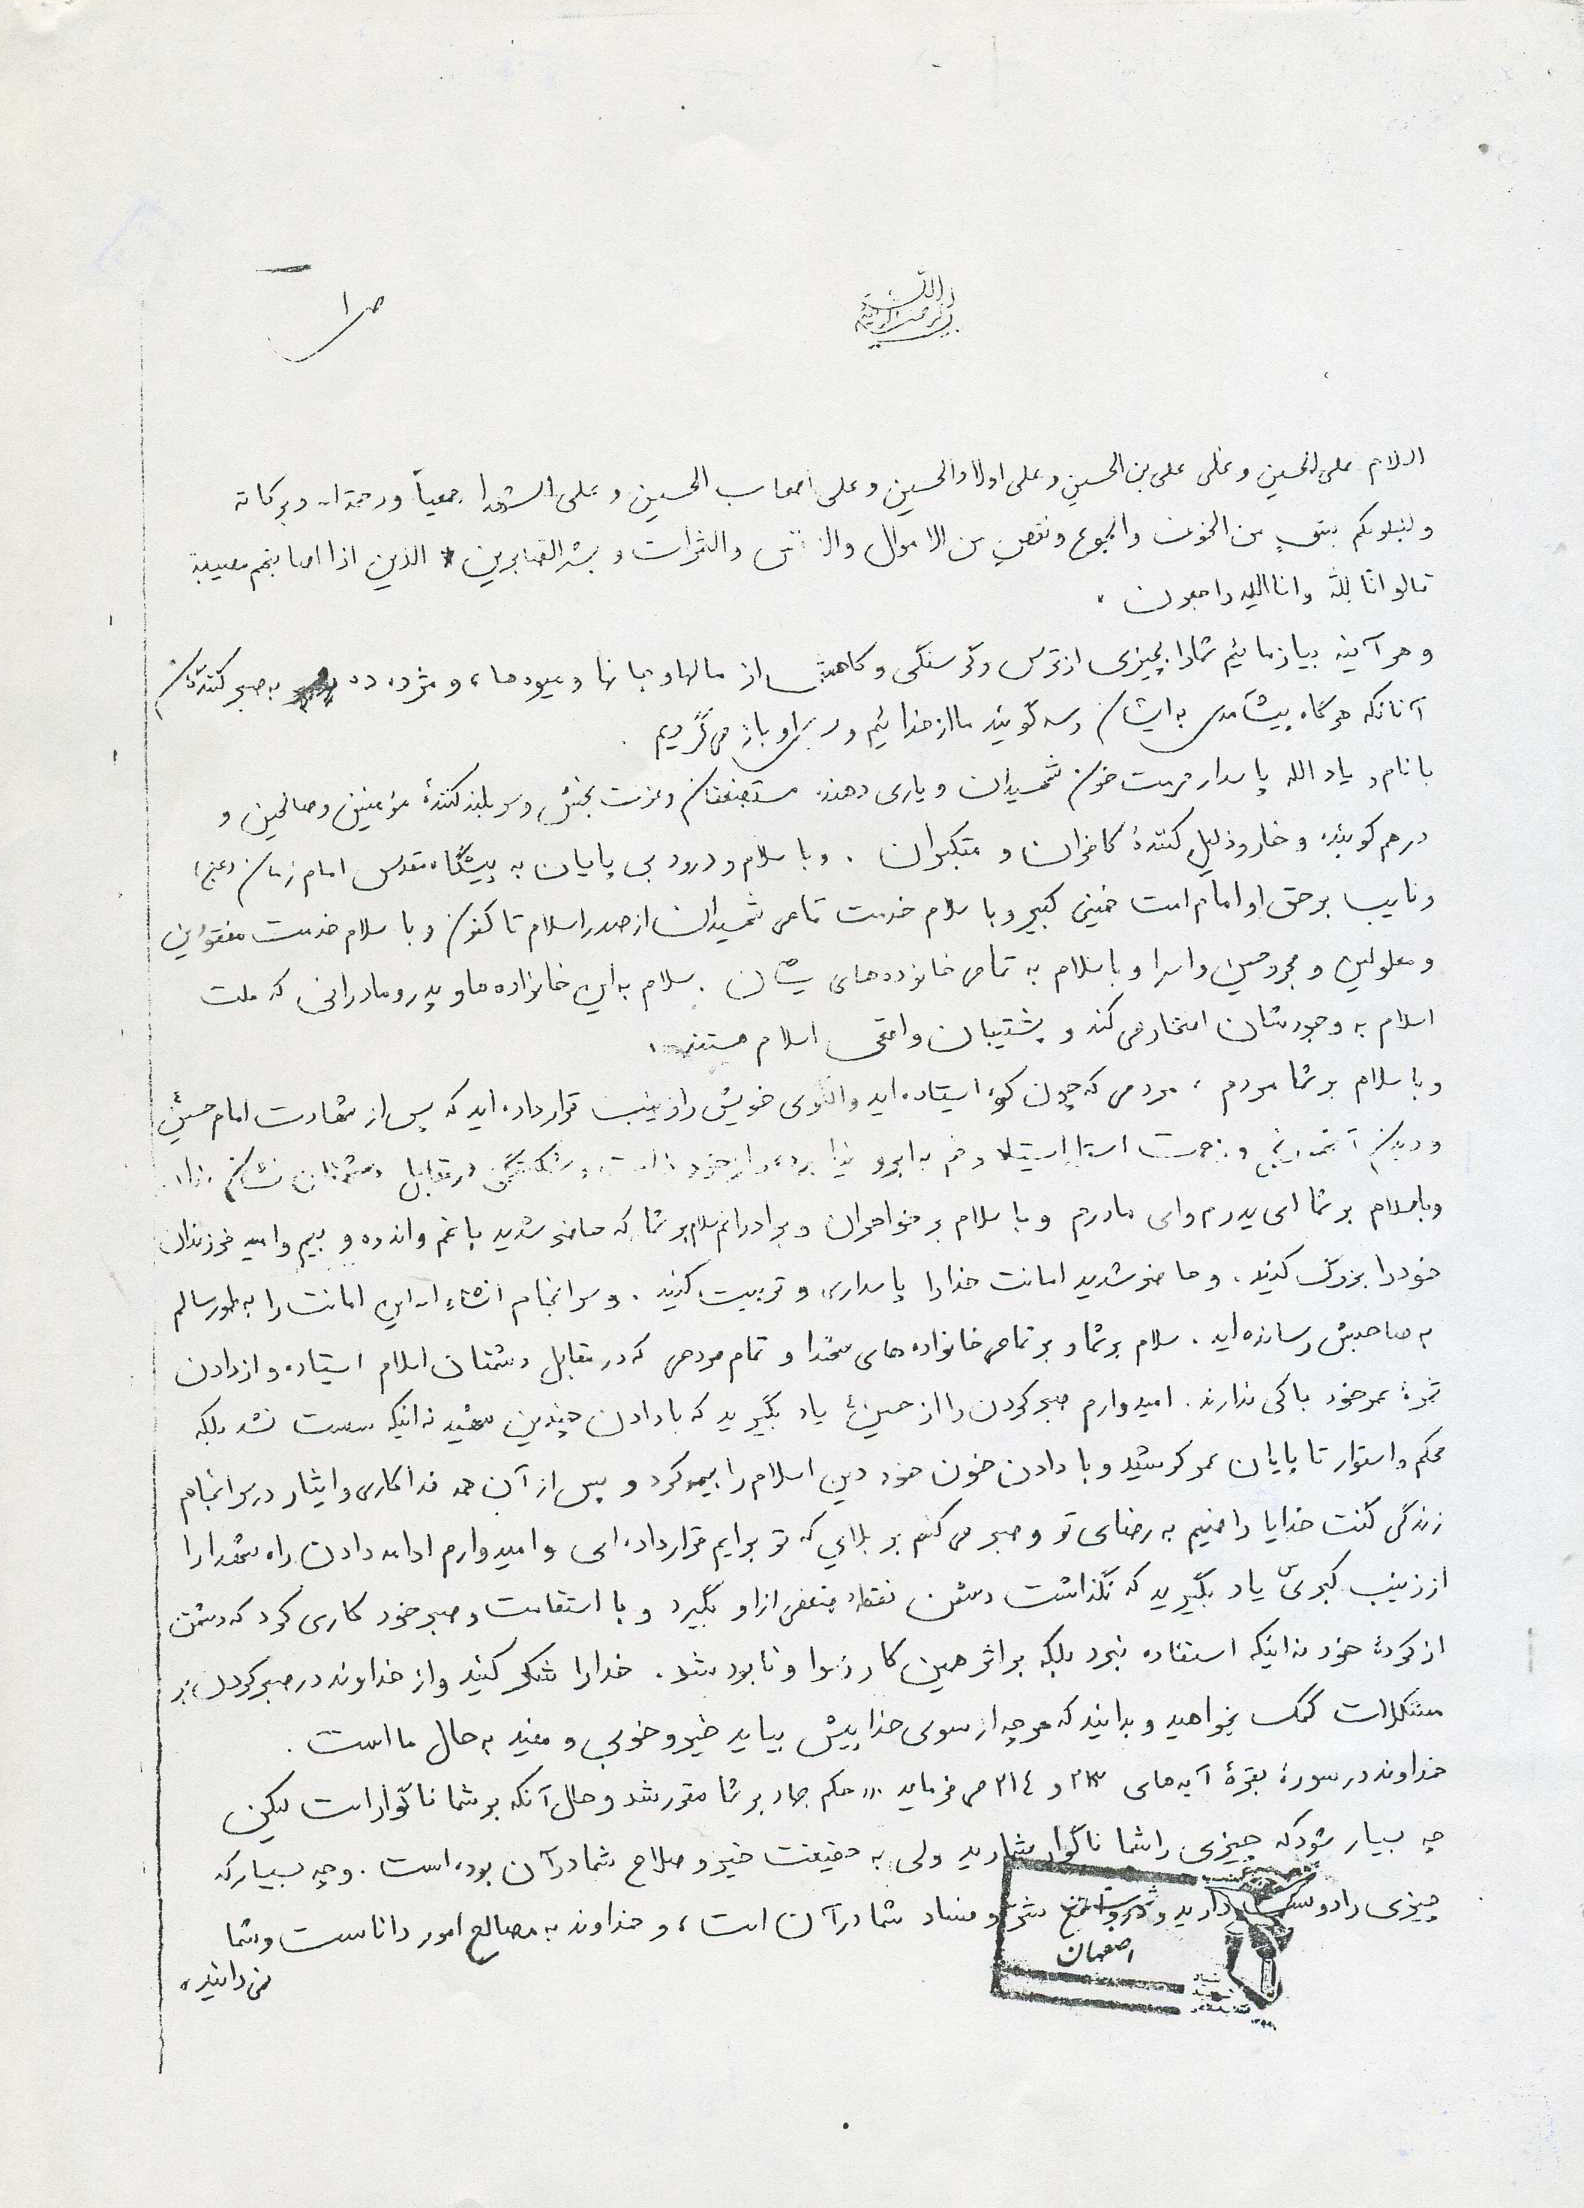 ص ۱
بسم الله الرحمن الرحیم
السلام علی الحسین و علی علی بن الحسین و علی اولاد الحسین و علی اصحاب الحسین و علی الشهدا جمیعاً و رحمة ا... و برکاته
ولنبلونکم بشیءٍ من الخوف والجوع ونقصٍ من الاموال والانفس والثمرات و بشر الصابرین * الذین اذا اصابتهم مصیبة
قالو انا لله و انا الیه راجعون .
و هر آینه بیازمائیم شما را بچیزی از ترس و گرسنگی و کاهش از مالها و جانها و میوه ها ، و مژده ده به صبر کنندگان
آنانکه هرگاه پیشآمدی به ایشان رسد گویند ما از خدائیم و بسوی او باز می گردیم .
با نام و یاد الله پاسدار حرمت خون شهیدان و یاری دهنده مستضعفان و عزت بخش و سربلند کنندهٔ مؤمنین و صالحین و
درهم کوبنده و خار و ذلیل کنندهٔ کافران و متکبران . و با سلام و درود بی پایان به پیشگاه مقدس امام زمان (عج)
و نایب بر حق او امام امت خمینی کبیر و با سلام خدمت تمامی شهیدان از صدر اسلام تا کنون و با سلام خدمت مفقودین
و معلولین و مجروحین و اسرا و با سلام به تمامی خانوده های یشان . سلام به این خانواده ها و پدر و مادرانی که ملت
اسلام به وجودشان افتخار می کند و پشتیبان واقعی اسلام هستند .
و با سلام بر شما مردم ، مردمی که چون کوه ایستاده اید و الگوی خویش را زینب قرار داده اید که پس از شهادت امام حسین
و دیدن آنهمه رنج و زحمت استوار ایستاد و خم به ابرو نیاورده و از خود ذلت و شکستگی در مقابل دشمنان نشان نداد.
و با سلام بر شما ای پدرم و ای مادرم و با سلام بر خواهران و برادرانم سلام بر شما که حاضر شدید با غم و اندوه و بیم و امید فرزندان
خود را بزرگ کنید . و حاضر شدید امانت خدا را پاسداری و تربیت کنید . و سرانجام انشاء ا... این امانت را به طور سالم
به صاحبش رسانده اید . سلام بر شما و بر تمامی خانواده های شهدا و تمام مردمی که در مقابل دشمنان اسلام ایستاده و از دادن
ثمرهٔ عمر خود باکی ندارند . امیدوارم صبر کردن را از حسینؑ یاد بگیرید که با دادن چندین شهید نه اینکه سست نشد بلکه
محکم و استوار تا پایان عمر کوشید و با دادن خون خود دین اسلام را بیمه کرد و پس از آن همه فداکاری و ایثار در سرانجام
زندگی گفت خدایا راضیم به رضای تو و صبر می کنم بر بلایی که تو برایم قرار داده ای و امیدوارم ادامه دادن راه شهدا را
از زینب کبریؑ یاد بگیرید که نگذاشت دشمن نقطه ضعفی از او بگیرد و با استقامت و صبر خود کاری کرد که دشمن
از کردهٔ خود نه اینکه استفاده نبرد بلکه بر اثر همین کار رسوا و نابود شد . خدا را شکر کنید و از خداوند در صبر کردن بر
مشکلات کمک بخواهید و بدانید که هر چه از سوی خدا پیش بیاید خیر و خوبی و مفید به حال ما است .
خداوند در سورهٔ بقرهٔ آیه های ۲۱۳ و ۲۱٤ می فرماید ... حکم جهاد بر شما مقرر شد و حال آنکه بر شما ناگوار است لیکن
چه بسیار شود که چیزی را شما ناگوار شمارید ولی به حقیقت خیر و صلاح شما در آن بوده است . و چه بسیار که
چیزی را دوست دارید و در واقع شرّ و فساد شما در آن است ، و خداوند به مصالح امور داناست و شما
نمی دانید .
اصفهان
بنیاد
شهید